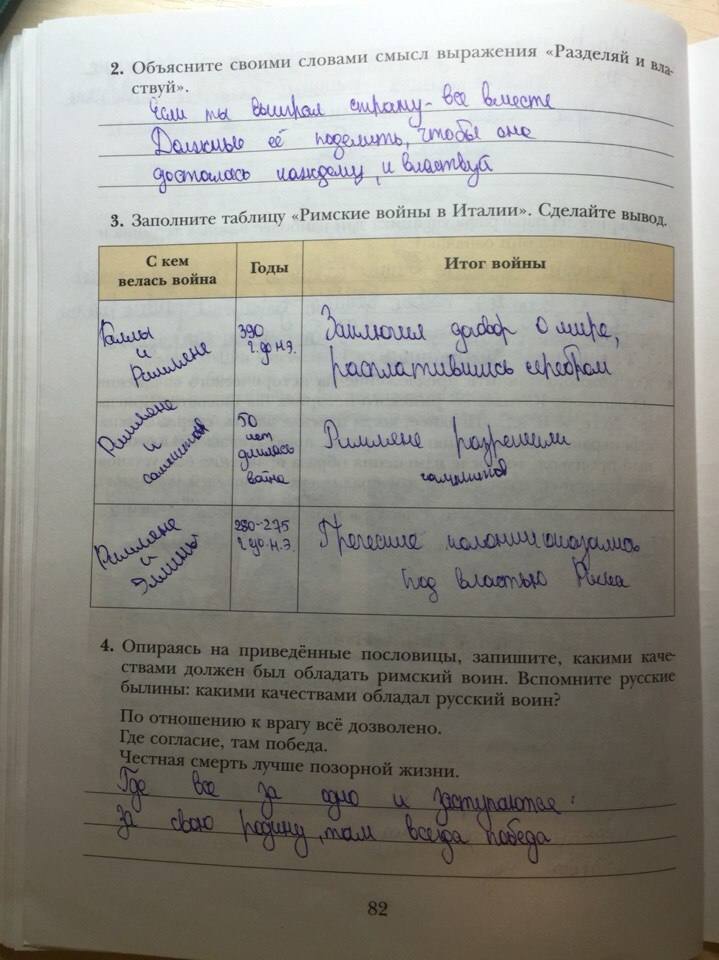 2. Объясните своими словами смысл выражения «Разделяй и вла-
ствуй».
Если ты выиграл страну - все вместе
Должные её поделить, чтобы она
досталась каждому, и властвуй
3. Заполните таблицу «Римские войны в Италии». Сделайте вывод.
С кем
велась война
Годы
Итог войны
Галлы
и
Римляне
390
г. до н.э.
Заключил договор о мире,
расплатившись серебром
Римляне
и
самнитов
50
лет
длилась
война
Римляне разрешили
самнитов
Римляне
и
Эллины
280-275
г. до.н.э.
Греческие колонии оказались
под властью Рима
4. Опираясь на приведённые пословицы, запишите, какими каче-
ствами должен был обладать римский воин. Вспомните русские
былины: какими качествами обладал русский воин?
По отношению к врагу всё дозволено.
Где согласие, там победа.
Честная смерть лучше позорной жизни.
Где все за одно и заступаются
за свою родину, там всегда победа
82